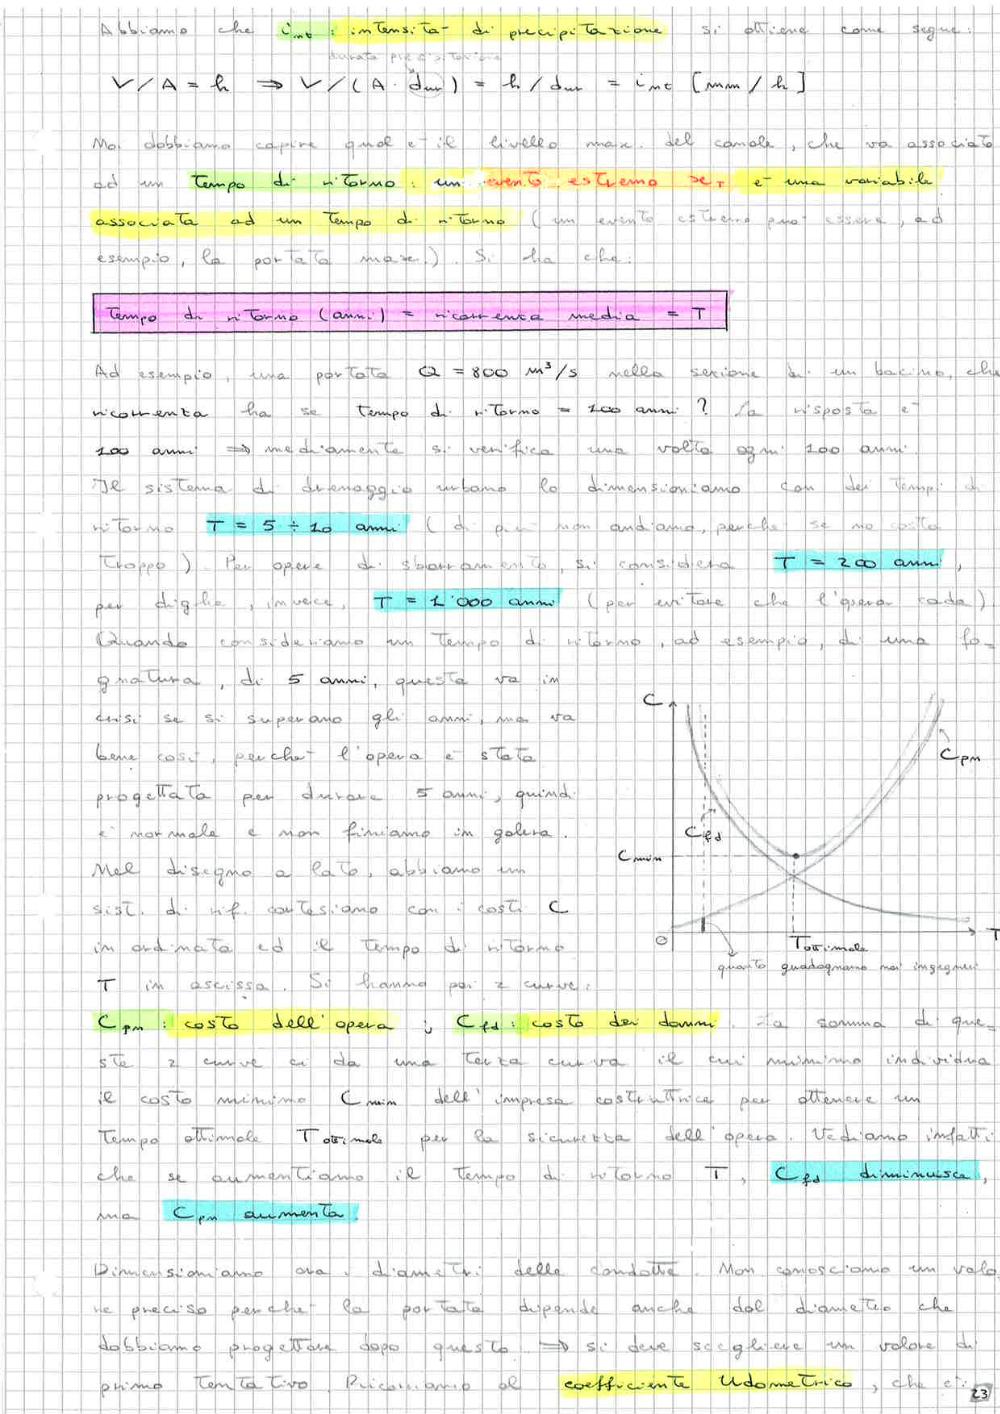 Abbiamo che i_int : intensità di precipitazione si ottiene come segue:
durata precipitazione
V/A = h ⇒ V/(A · dur) = h/dur = i_int [mm/h]
Noi dobbiamo capire qual è il livello max. del canale, che va associato
ad un tempo di ritorno: un evento estremo se, è una variabile
associata ad un tempo di ritorno (un evento estremo può essere, ad
esempio, la portata max.). Si ha che:
Tempo di ritorno (anni) = ricorrenza media = T
Ad esempio, una portata Q = 800 m³/s nella sezione di un bacino, che
ricorrenza ha se tempo di ritorno = 100 anni? La risposta è
100 anni ⇒ mediamente si verifica una volta ogni 100 anni.
Il sistema di drenaggio urbano lo dimensioniamo con dei tempi di
ritorno T = 5 ÷ 10 anni (di più non andiamo, perchè se no costa
troppo). Per opere di sbarramento, si considera T = 200 anni,
per dighe, invece, T = 1'000 anni (per evitare che l'opera cada).
Quando consideriamo un tempo di ritorno, ad esempio, di una fo-
gnatura, di 5 anni, questa va in
crisi se si superano gli anni, ma va
bene così, perchè l'opera è stata
progettata per durare 5 anni, quindi
è normale e non finiamo in galera.
Nel disegno a lato, abbiamo un
sist. di rif. cartesiano con i costi C
in ordinata ed il tempo di ritorno
T in ascissa. Si hanno poi 2 curve:
C
C_pm
C_fd
C_min
0
T_ottimale
T
quanto guadagnamo noi ingegneri
C_pm : costo dell'opera ; C_fd : costo dei danni. La somma di que-
ste 2 curve ci dà una terza curva il cui minimo individua
il costo minimo C_min dell'impresa costruttrice per ottenere un
tempo ottimale T_ottimale per la sicurezza dell'opera. Vediamo infatti
che se aumentiamo il tempo di ritorno T, C_fd diminuisce,
ma C_pm aumenta.
Dimensioniamo ora i diametri delle condotte. Non conosciamo un valo
re preciso perchè la portata dipende anche dal diametro che
dobbiamo progettare dopo questo ⇒ si deve scegliere un valore di
primo tentativo. Ricorriamo al coefficiente Udometrico, che è:
23